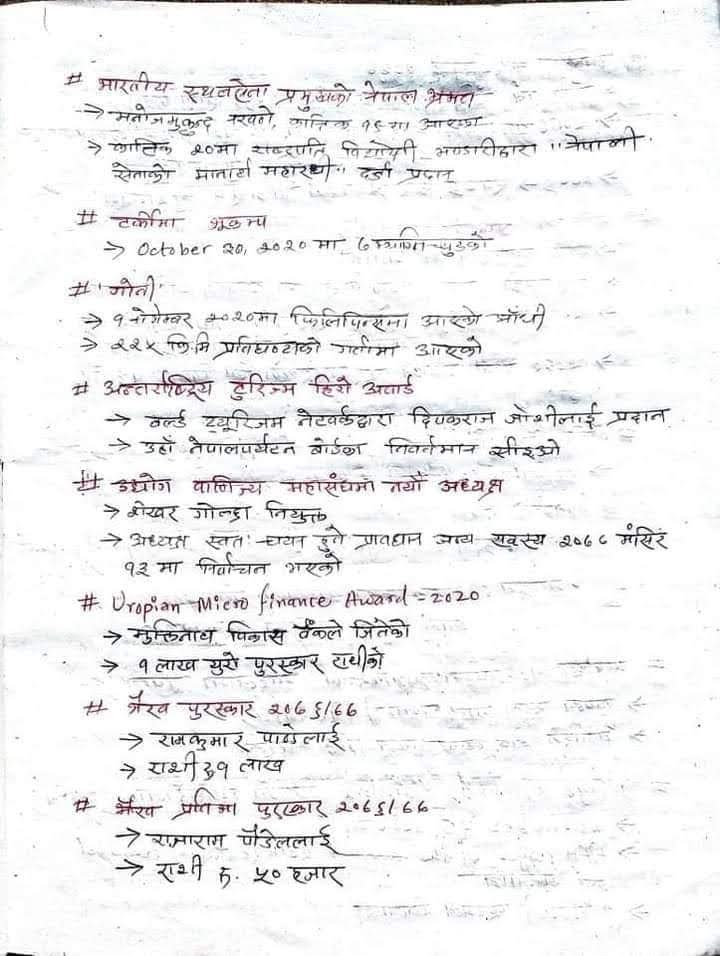 # भारतीय स्थलसेना प्रमुखको नेपाल भ्रमण
→ मनोजमुकुन्द नरवणे, कात्तिक १९ मा आएका
→ कात्तिक २० मा राष्ट्रपति विद्यादेवी भण्डारीद्वारा "नेपाली
सेनाको मानार्थ महारथी" दर्जा प्रदान
# टर्कीमा भूकम्प
→ October 30, 2020 मा
# 'गोनी'
→ १ नोभेम्बर २०२० मा फिलिपिन्समा आएको आँधी
→ २२५ कि.मि प्रतिघण्टाको गतीमा आएको
# अन्तर्राष्ट्रिय टुरिज्म हिरो अवार्ड
→ वर्ल्ड ट्यूरिजम नेटवर्कद्वारा दिपकराज जोशीलाई प्रदान
→ उहाँ नेपालपर्यटन बोर्डका निवर्तमान सीइओ
# उद्योग वाणिज्य महासंघमा नयाँ अध्यक्ष
→ शेखर गोल्छा नियुक्त
→ अध्यक्ष स्वतः चयन हुने प्रावधान
मंसिर
१३ मा निर्वाचन भएको
# Uropian Micro finance Award - 2020
→ मुक्तिनाथ विकास बैंकले जितेको
→ १ लाख युरो पुरस्कार राशीको
# भैरव पुरस्कार
→ रामकुमार पाँडेलाई
→ राशी रु १ लाख
# भैरव प्रतिभा पुरस्कार
→ राजाराम पौडेललाई
→ राशी रु. ५० हजार